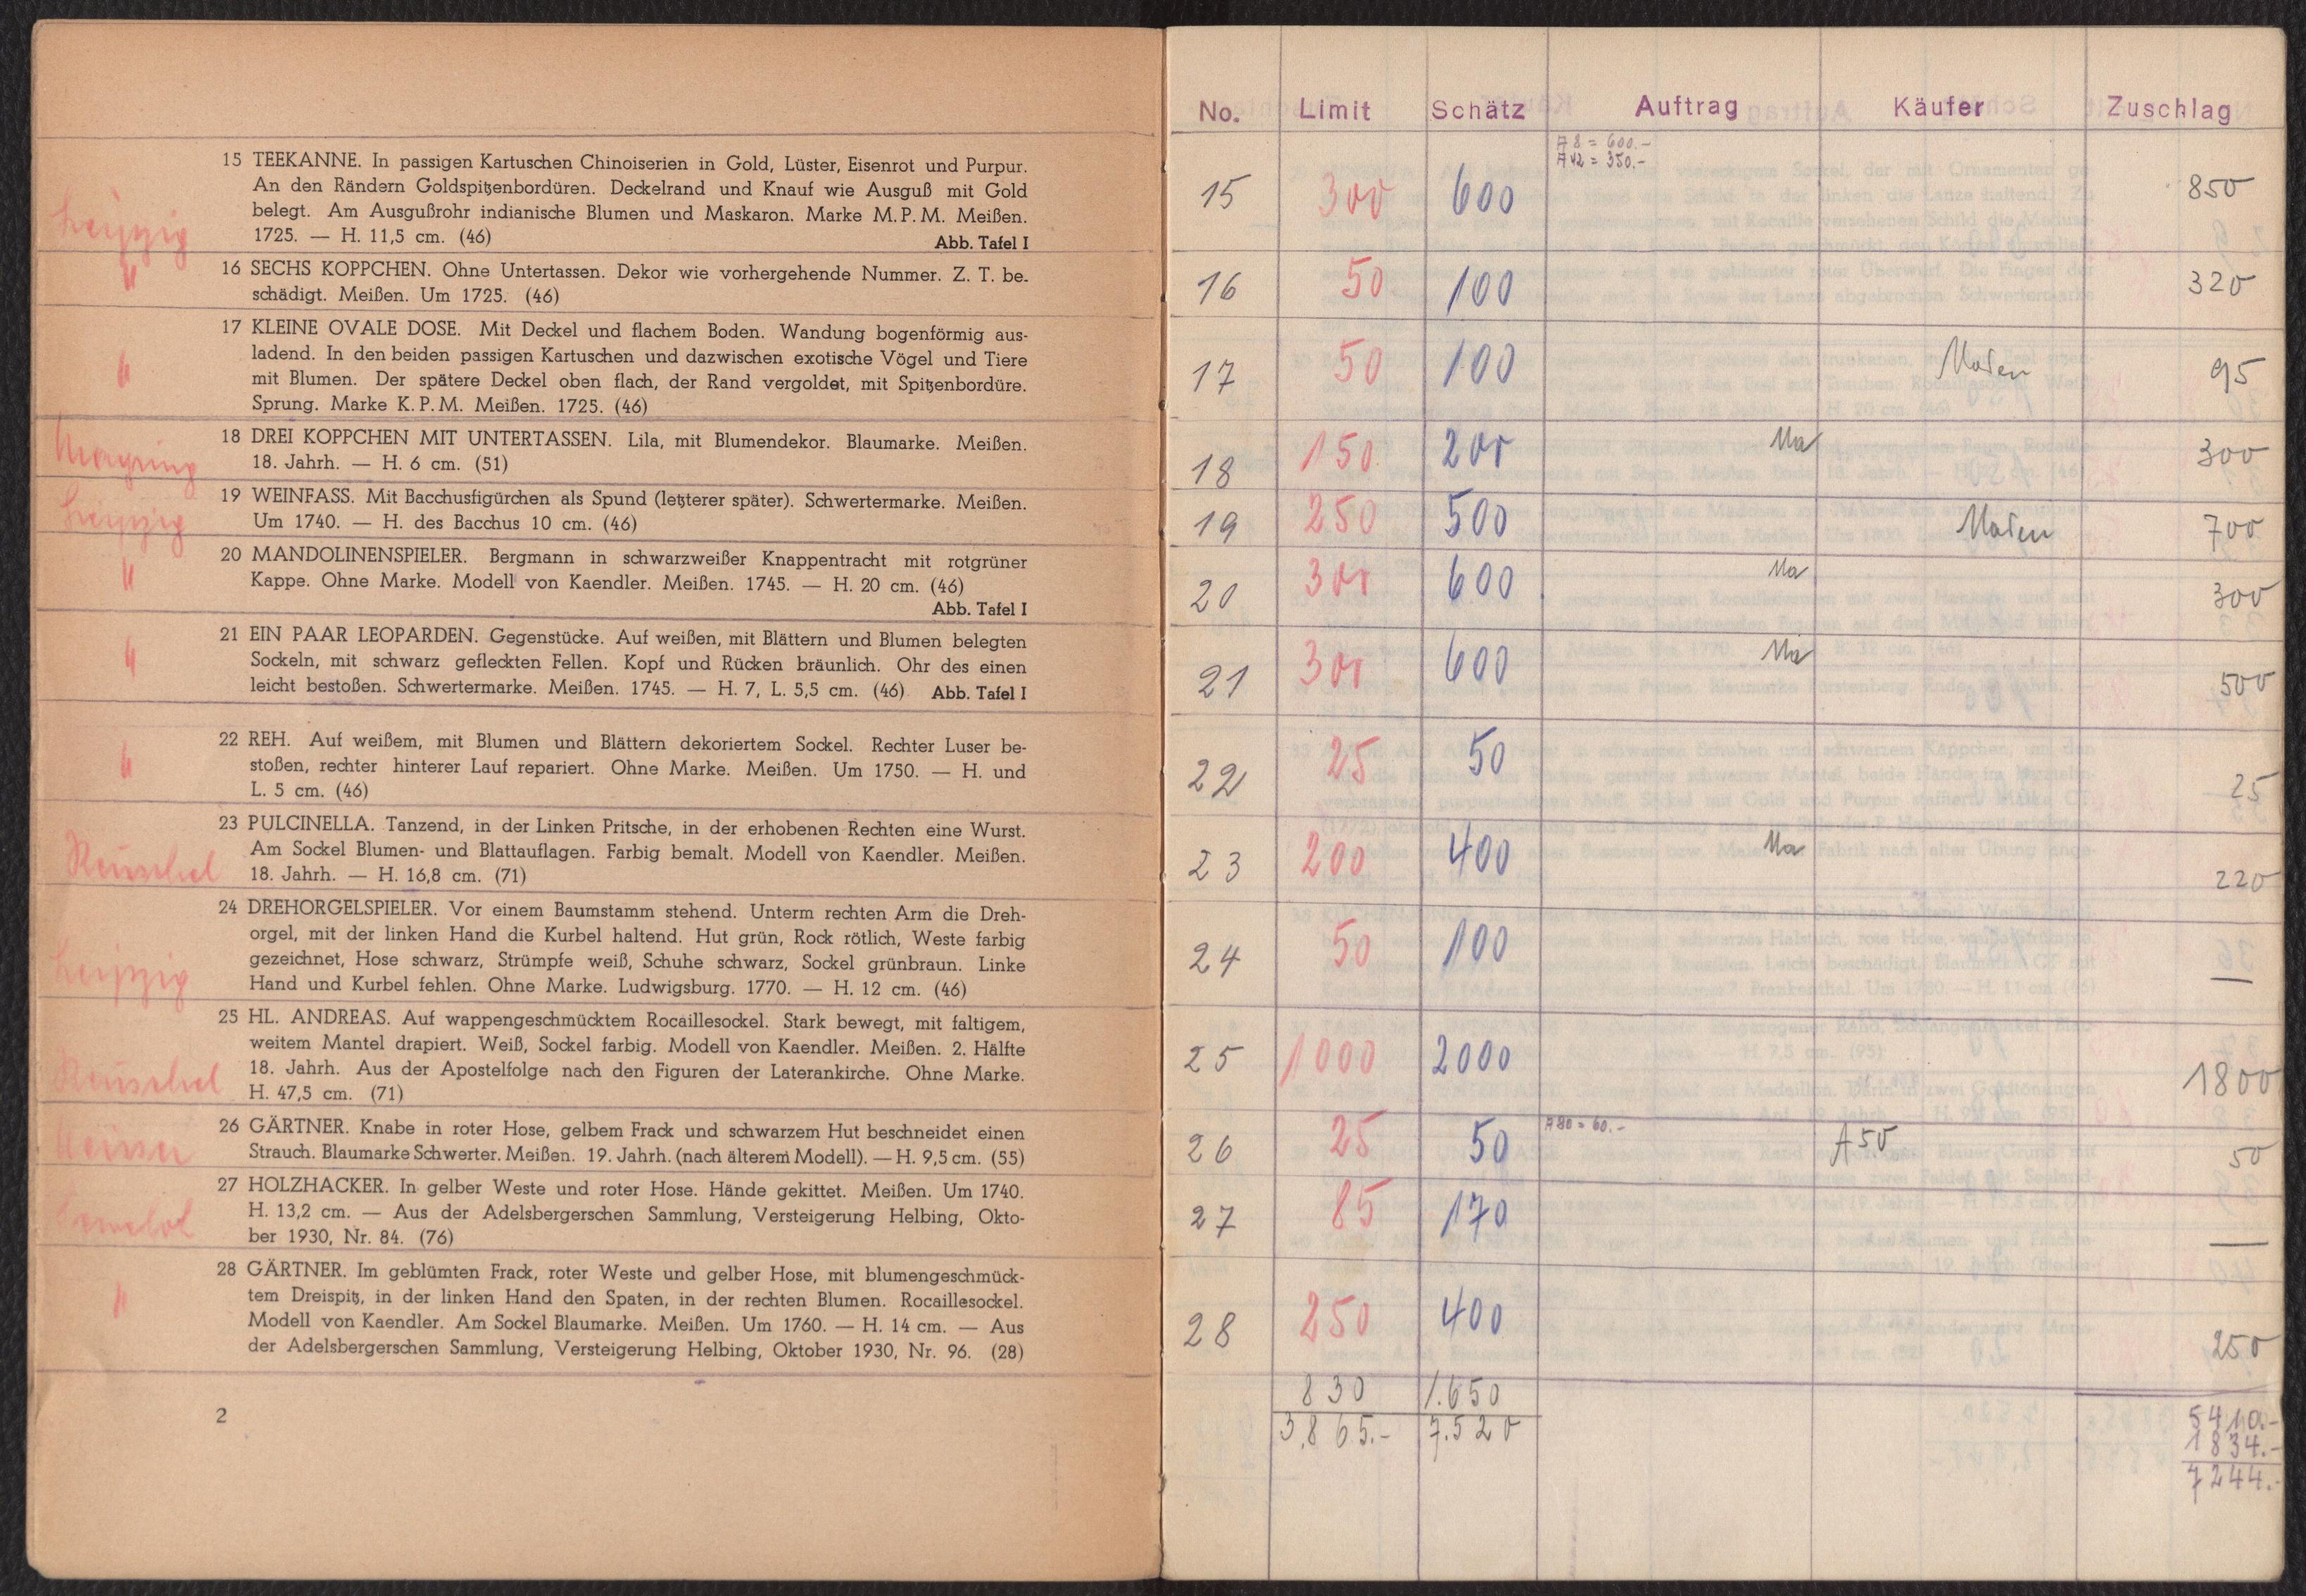 15 TEEKANNE. In passigen Kartuschen Chinoiserien in Gold, Lüster, Eisenrot und Purpur.
An den Rändern Goldspitzenbordüren. Deckelrand und Knauf wie Ausguß mit Gold
belegt. Am Ausgußrohr indianische Blumen und Maskaron. Marke M. P. M. Meißen.
Leipzig
1725. — H. 11,5 cm. (46) Abb. Tafel I
16 SECHS KOPPCHEN. Ohne Untertassen. Dekor wie vorhergehende Nummer. Z. T. be-
schädigt. Meißen. Um 1725. (46)
17 KLEINE OVALE DOSE. Mit Deckel und flachem Boden. Wandung bogenförmig aus-
ladend. In den beiden passigen Kartuschen und dazwischen exotische Vögel und Tiere
mit Blumen. Der spätere Deckel oben flach, der Rand vergoldet, mit Spitzenbordüre.
Sprung. Marke K. P. M. Meißen. 1725. (46)
18 DREI KOPPCHEN MIT UNTERTASSEN. Lila, mit Blumendekor. Blaumarke. Meißen.
18. Jahrh. — H. 6 cm. (51)
19 WEINFASS. Mit Bacchusfigürchen als Spund (letzterer später). Schwertermarke. Meißen.
Leipzig
Um 1740. — H. des Bacchus 10 cm. (46)
20 MANDOLINENSPIELER. Bergmann in schwarzweißer Knappentracht mit rotgrüner
Kappe. Ohne Marke. Modell von Kaendler. Meißen. 1745. — H. 20 cm. (46)
Abb. Tafel I
21 EIN PAAR LEOPARDEN. Gegenstücke. Auf weißen, mit Blättern und Blumen belegten
Sockeln, mit schwarz gefleckten Fellen. Kopf und Rücken bräunlich. Ohr des einen
leicht bestoßen. Schwertermarke. Meißen. 1745. — H. 7, L. 5,5 cm. (46) Abb. Tafel I
22 REH. Auf weißem, mit Blumen und Blättern dekoriertem Sockel. Rechter Luser be-
stoßen, rechter hinterer Lauf repariert. Ohne Marke. Meißen. Um 1750. — H. und
L. 5 cm. (46)
23 PULCINELLA. Tanzend, in der Linken Pritsche, in der erhobenen Rechten eine Wurst.
Am Sockel Blumen- und Blattauflagen. Farbig bemalt. Modell von Kaendler. Meißen.
Reuschel
18. Jahrh. — H. 16,8 cm. (71)
24 DREHORGELSPIELER. Vor einem Baumstamm stehend. Unterm rechten Arm die Dreh-
orgel, mit der linken Hand die Kurbel haltend. Hut grün, Rock rötlich, Weste farbig
gezeichnet, Hose schwarz, Strümpfe weiß, Schuhe schwarz, Sockel grünbraun. Linke
Leipzig
Hand und Kurbel fehlen. Ohne Marke. Ludwigsburg. 1770. — H. 12 cm. (46)
25 HL. ANDREAS. Auf wappengeschmücktem Rocaillesockel. Stark bewegt, mit faltigem,
weitem Mantel drapiert. Weiß, Sockel farbig. Modell von Kaendler. Meißen. 2. Hälfte
18. Jahrh. Aus der Apostelfolge nach den Figuren der Laterankirche. Ohne Marke.
Reuschel
H. 47,5 cm. (71)
26 GÄRTNER. Knabe in roter Hose, gelbem Frack und schwarzem Hut beschneidet einen
Strauch. Blaumarke Schwerter. Meißen. 19. Jahrh. (nach älterem Modell). — H. 9,5 cm. (55)
27 HOLZHACKER. In gelber Weste und roter Hose. Hände gekittet. Meißen. Um 1740.
H. 13,2 cm. — Aus der Adelsbergerschen Sammlung, Versteigerung Helbing, Okto-
ber 1930, Nr. 84. (76)
28 GÄRTNER. Im geblümten Frack, roter Weste und gelber Hose, mit blumengeschmück-
tem Dreispitz, in der linken Hand den Spaten, in der rechten Blumen. Rocaillesockel.
Modell von Kaendler. Am Sockel Blaumarke. Meißen. Um 1760. — H. 14 cm. — Aus
der Adelsbergerschen Sammlung, Versteigerung Helbing, Oktober 1930, Nr. 96. (28)
2
No. Limit Schätz Auftrag Käufer Zuschlag
A 8 = 600.-
A 42 = 350.-
15 300 600 850
16 50 100 320
17 50 100 95
18 150 200 Ma 300
19 250 500 700
20 300 600 Ma 300
21 300 600 Ma 500
22 25 50 25
23 200 400 Ma 220
24 50 100 —
25 1000 2000 1800
A 80 = 60.-
26 25 50 A 50 50
27 85 170 —
28 250 400 250
830 1.650
3.865.- 7.520
5410.-
1834.-
7244.-